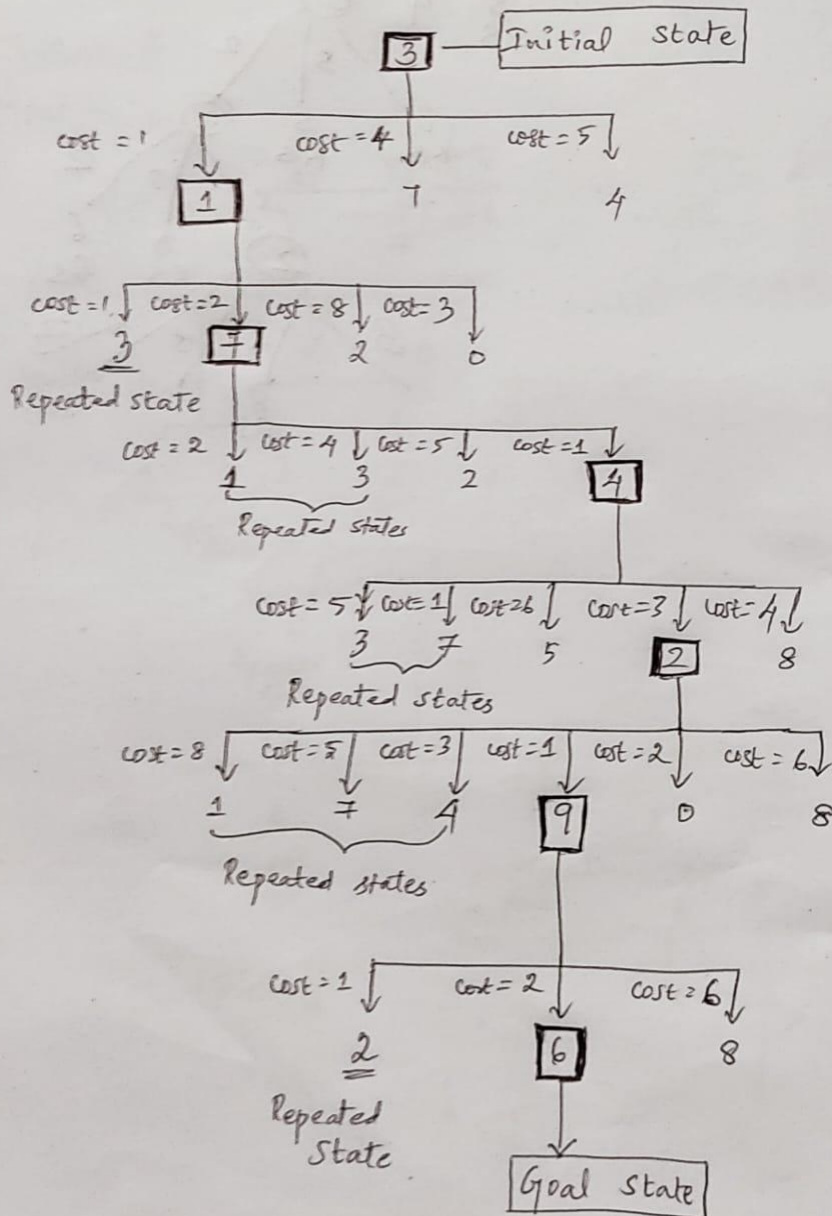 3 Initial state
cost = 1 cost = 4 cost = 5
1 7 4
cost = 1 cost = 2 cost = 8 cost = 3
3 7 2 0
Repeated state
cost = 2 cost = 4 cost = 5 cost = 1
1 3 2 4
Repeated states
cost = 5 cost = 1 cost = 6 cost = 3 cost = 4
3 7 5 2 8
Repeated states
cost = 8 cost = 5 cost = 3 cost = 1 cost = 2 cost = 6
1 7 4 9 0 8
Repeated states
cost = 1 cost = 2 cost = 6
2 6 8
Repeated
State
Goal State